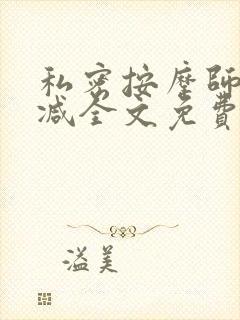 私密按摩師
减全文免費
溢美